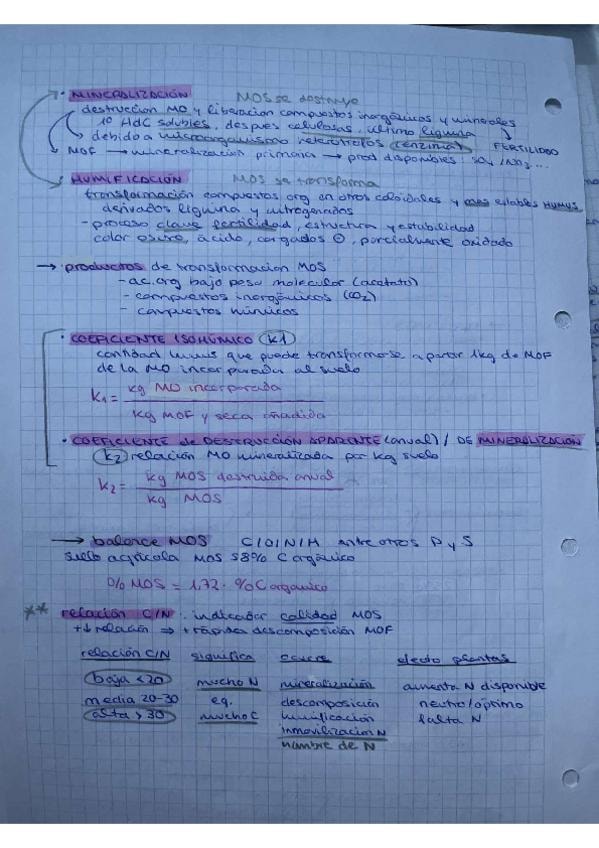 · MINERALIZACIÓN MOS se destruye
destruccion MO y liberacion compuestos inorgánicos y minerales
1º HdC solubles, despues celulosas, último lignina
debido a microorganismo heterotrofos (enzima) FERTILIDAD
MOF → mineralización primaria → prod disponibles: SO4, NO3...
· HUMIFICACIÓN MOS se transforma
transformación compuestos org en otros coloidales y mas estables HUMUS
derivados lignina y nitrogenados
- proceso clave fertilidad, estructura y estabilidad
color oscuro, ácido, cargados ⊖, parcialmente oxidado
→ productos de transformacion MOS
- ac. org bajo peso molecular (acetato)
- compuestos inorgánicos (CO2)
- compuestos húmicos
· COEFICIENTE ISOHÚMICO (K1)
cantidad humus que puede transformarse a partir 1kg de MOF
de la MO incorporada al suelo
K1 = kg MO incorporada
kg MOF y seca añadida
· COEFICIENTE de DESTRUCCIÓN APARENTE (anual) / DE MINERALIZACIÓN
(K2) relación MO mineralizada por kg suelo
K2 = kg MOS destruida anual
kg MOS
→ balance MOS C/O/N/H entre otros P y S
suelo agrícola MOS 58% C orgánico
% MOS = 1,72 · % C organico
** relación C/N: indicador calidad MOS
+↓ relación ⇒ + rápida descomposición MOF
relación C/N significa ocurre efecto plantas
baja <20 mucho N mineralización aumenta N disponible
media 20-30 eq. descomposición neutro/óptimo
alta >30 mucho C humificación falta N
inmovilización N
hambre de N